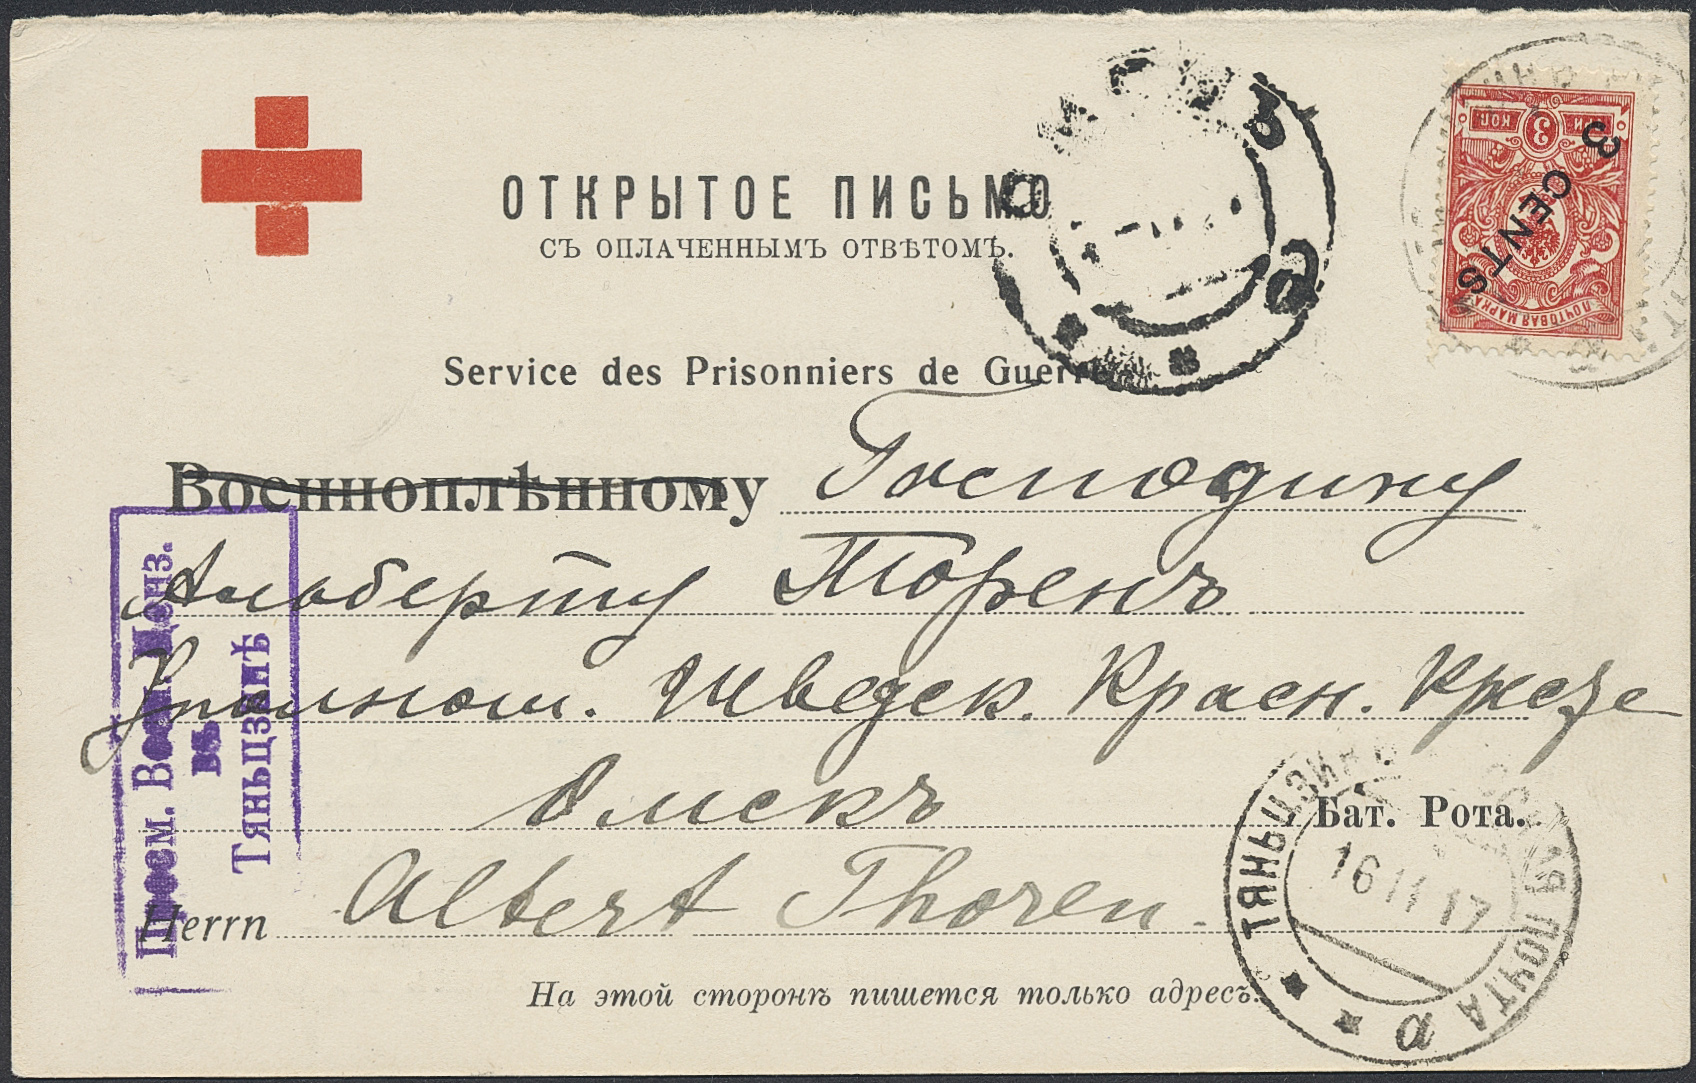 ОТКРЫТОЕ ПИСЬМО
СЪ ОПЛАЧЕННЫМЪ ОТВѢТОМЪ.
3 КОП
3 CENTS
ПОЧТОВАЯ МАРКА
Service des Prisonniers de Guerre
Военноплѣнному Господину
Альберту Торенъ
Уполнom. Шведск. Красн. Креста
Омскъ
Бат. Рота.
Herrn Albert Thoren.
На этой сторонѣ пишется только адресъ.
Просм. Воен. Ценз.
въ
Тяньцзинѣ
ТЯНЬЦЗИНЪ ПОЧТА
16 11 17
а
б